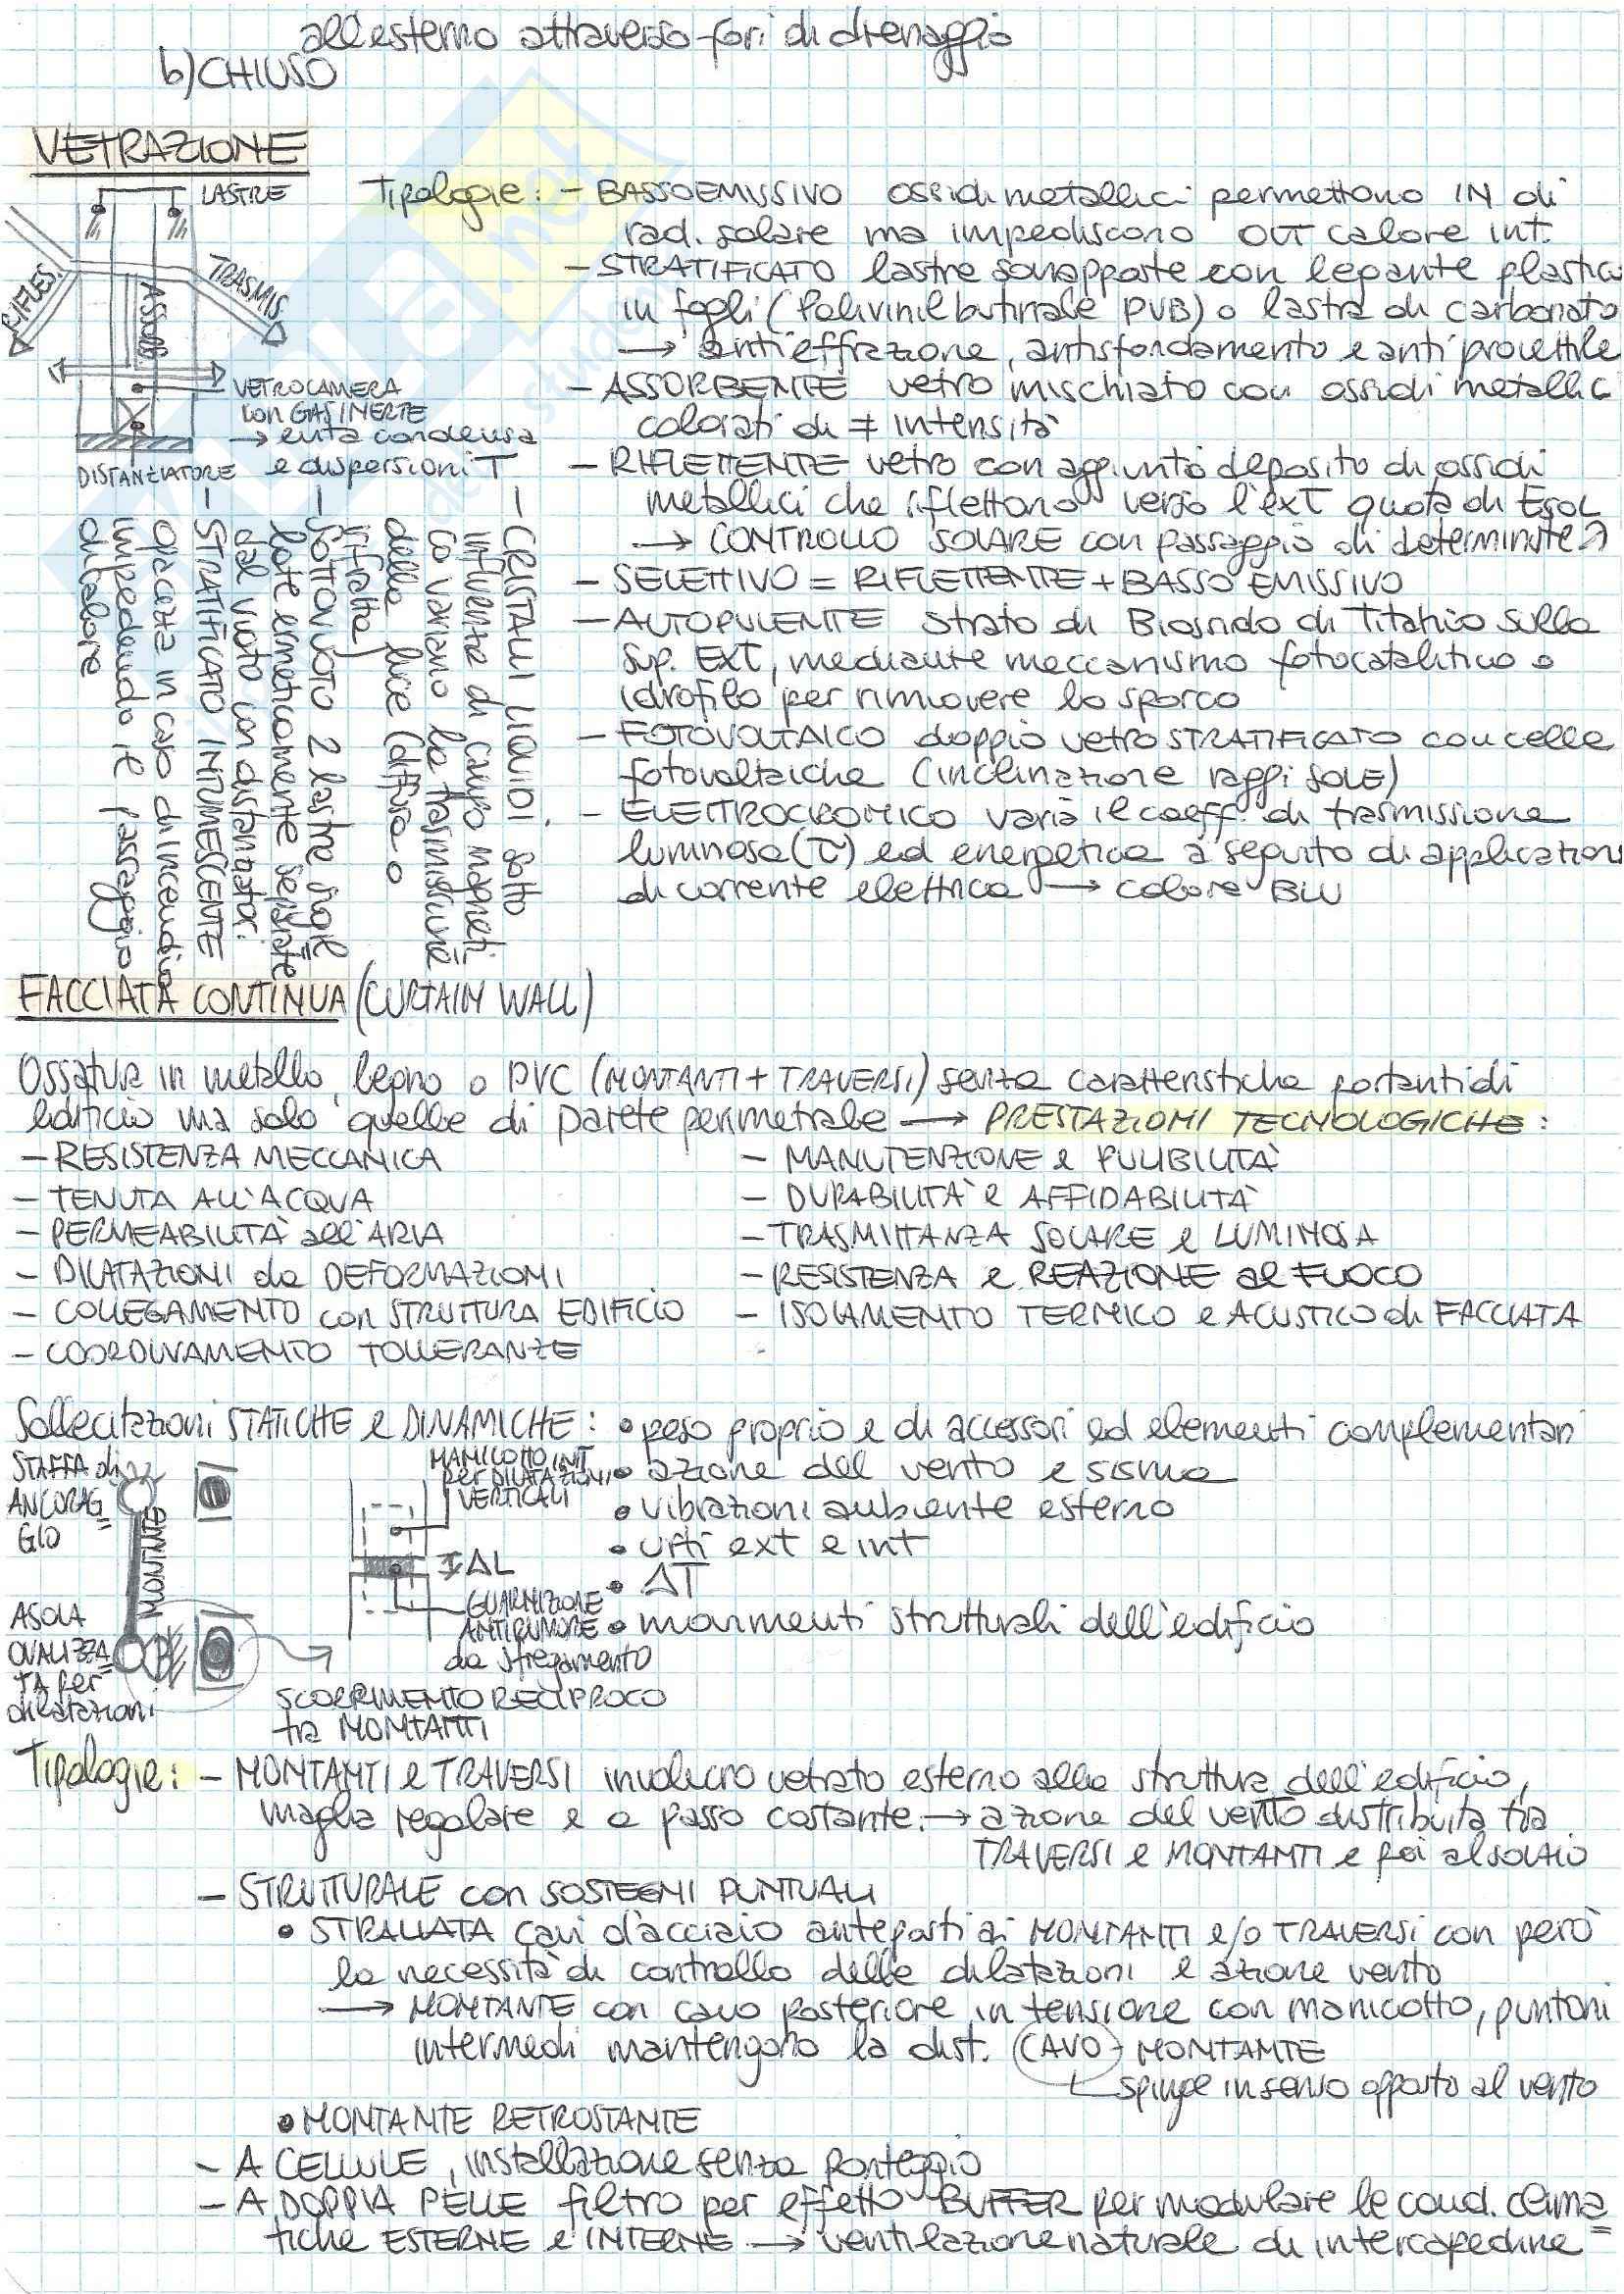 all'esterno attraverso fori di drenaggio
b) CHIUSO
VETRAZIONE
LASTRE
RIFLES.
ASSORB
TRASMIS.
VETROCAMERA
con GAS INERTE
→ evita condensa
e dispersioni T
DISTANZIATORE
Tipologie: - BASSOEMISSIVO ossidi metallici permettono IN di
rad. solare ma impediscono OUT calore int.
- STRATIFICATO lastre sovrapposte con legante plastico
in fogli (Polivinilbutirrale PVB) o lastra di carbonato
→ antieffrazione, antisfondamento e antiproiettile
- ASSORBENTE vetro mischiato con ossidi metallici
colorati di ≠ intensità
- RIFLETTENTE vetro con aggiunto deposito di ossidi
metallici che riflettono verso l'exT quota di Esol
→ CONTROLLO SOLARE con passaggio di determinate λ
- SELETTIVO = RIFLETTENTE + BASSO EMISSIVO
- AUTOPULENTE strato di Biossido di Titanio sulla
sup. EXT, mediante meccanismo fotocatalitico o
idrofilo per rimuovere lo sporco
- FOTOVOLTAICO doppio vetro STRATIFICATO con celle
fotovoltaiche (inclinazione raggi SOLE)
- ELETTROCROMICO varia il coeff. di trasmissione
luminosa (τ) ed energetica a seguito di applicazioni
di corrente elettrica → colore BLU
- CRISTALLI LIQUIDI sotto
influenza di campo magneti
co variano la trasmissione
della luce (diffusa o
rifratta)
- Sottovuoto 2 lastre singole
late ermeticamente separate
dal vuoto con distanziatori
- STRATIFICATO INTUMESCENTE
opacizza in caso di incendio
impedendo il passaggio
di calore
FACCIATA CONTINUA (CURTAIN WALL)
Ossatura in metallo, legno o PVC (MONTANTI + TRAVERSI) senza caratteristiche portanti di
edificio ma solo quelle di parete perimetrale → PRESTAZIONI TECNOLOGICHE:
- RESISTENZA MECCANICA
- TENUTA ALL'ACQUA
- PERMEABILITÀ all'ARIA
- DILATAZIONI da DEFORMAZIONI
- COLLEGAMENTO con STRUTTURA EDIFICIO
- COORDINAMENTO TOLLERANZE
- MANUTENZIONE e PULIBILITÀ
- DURABILITÀ e AFFIDABILITÀ
- TRASMITTANZA SOLARE e LUMINOSA
- RESISTENZA e REAZIONE al FUOCO
- ISOLAMENTO TERMICO e ACUSTICO di FACCIATA
Sollecitazioni STATICHE e DINAMICHE: • peso proprio e di accessori ed elementi complementari
• azione del vento e sisma
• vibrazioni ambiente esterno
• urti ext e int
• ΔT
• movimenti strutturali dell'edificio
STAFFA di
ANCORAG=
GIO
MONTANTE
ASOLA
OVALIZZA=
TA per
dilatazioni
MANICOTTO INT
per DILATAZIONI
VERTICALI
ΔL
GUARNIZIONE
ANTIRUMORE
da sfregamento
SCORRIMENTO RECIPROCO
tra MONTANTI
Tipologie: - MONTANTI e TRAVERSI involucro vetrato esterno alla struttura dell'edificio,
maglia regolare e a passo costante. → azione del vento distribuita tra
TRAVERSI e MONTANTI e poi al solaio
- STRUTTURALE con SOSTEGNI PUNTUALI
• STRALLATA cavi d'acciaio anteposti ai MONTANTI e/o TRAVERSI con però
la necessità di controllo delle dilatazioni e azione vento
→ MONTANTE con cavo posteriore in tensione con manicotto, puntoni
intermedi mantengono la dist. CAVO - MONTANTE
spinge in senso opposto al vento
• MONTANTE RETROSTANTE
- A CELLULE, installazione senza ponteggio
- A DOPPIA PELLE filtro per effetto BUFFER per modulare le cond. clima=
tiche ESTERNE e INTERNE → ventilazione naturale di intercapedine